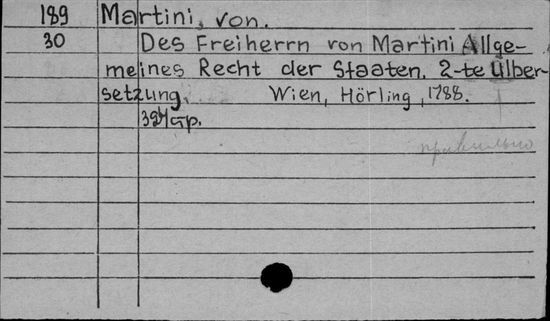 189 Martini, von.
30 Des Freiherrn von Martini Allge-
meines Recht der Staaten. 2-te Ülber-
setzung. Wien, Hörling, 1788.
324 стр.
правильно